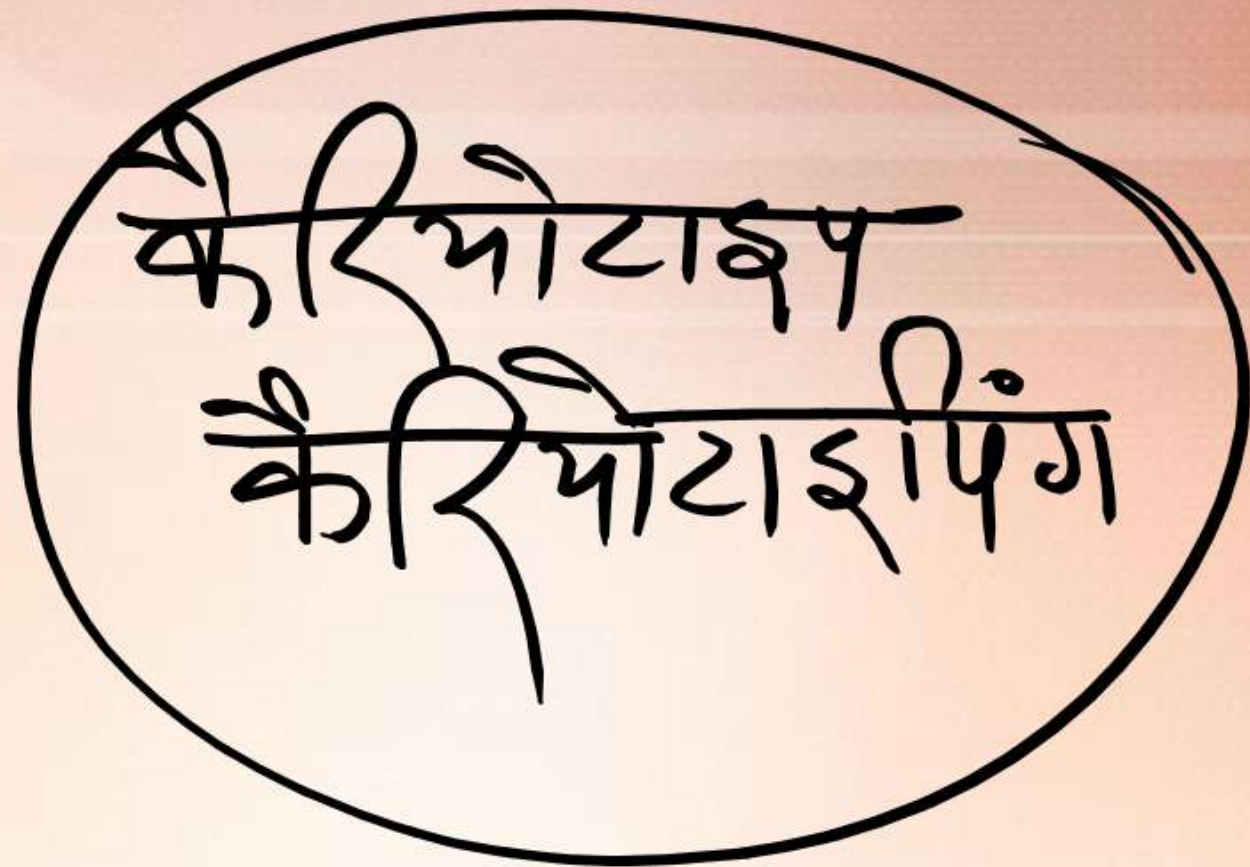 कैरियोटाइप
कैरियोटाइपिंग